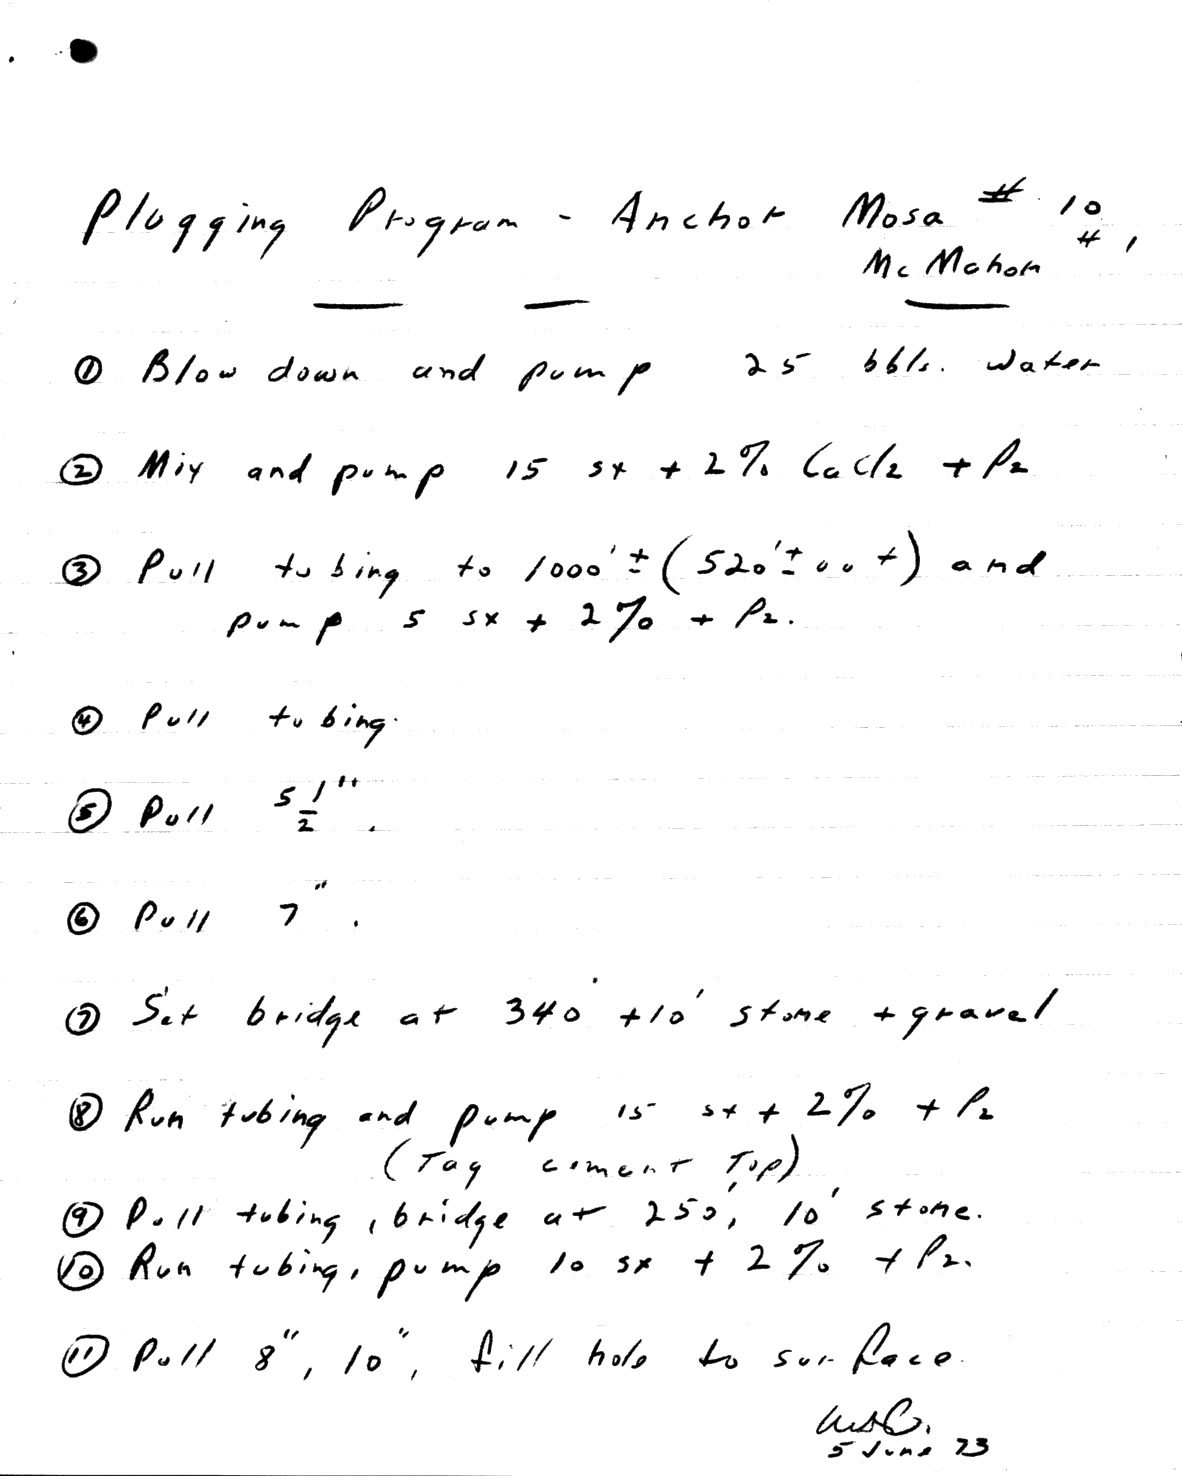 Plugging Program - Anchor Mosa # 10
Mc Mahon #1
① Blow down and pump 25 bbls. water
② Mix and pump 15 sx + 2% CaCl2 + P2
③ Pull tubing to 1000' ± (520' ± out) and
pump 5 sx + 2% + P2.
④ Pull tubing.
⑤ Pull 5 1/2".
⑥ Pull 7".
⑦ Set bridge at 340' + 10' stone + gravel
⑧ Run tubing and pump 15 sx + 2% + P2
(Tag cement Top)
⑨ Pull tubing, bridge at 250', 10' stone.
⑩ Run tubing, pump 10 sx + 2% + P2.
⑪ Pull 8", 10", fill hole to surface.
5 June 73